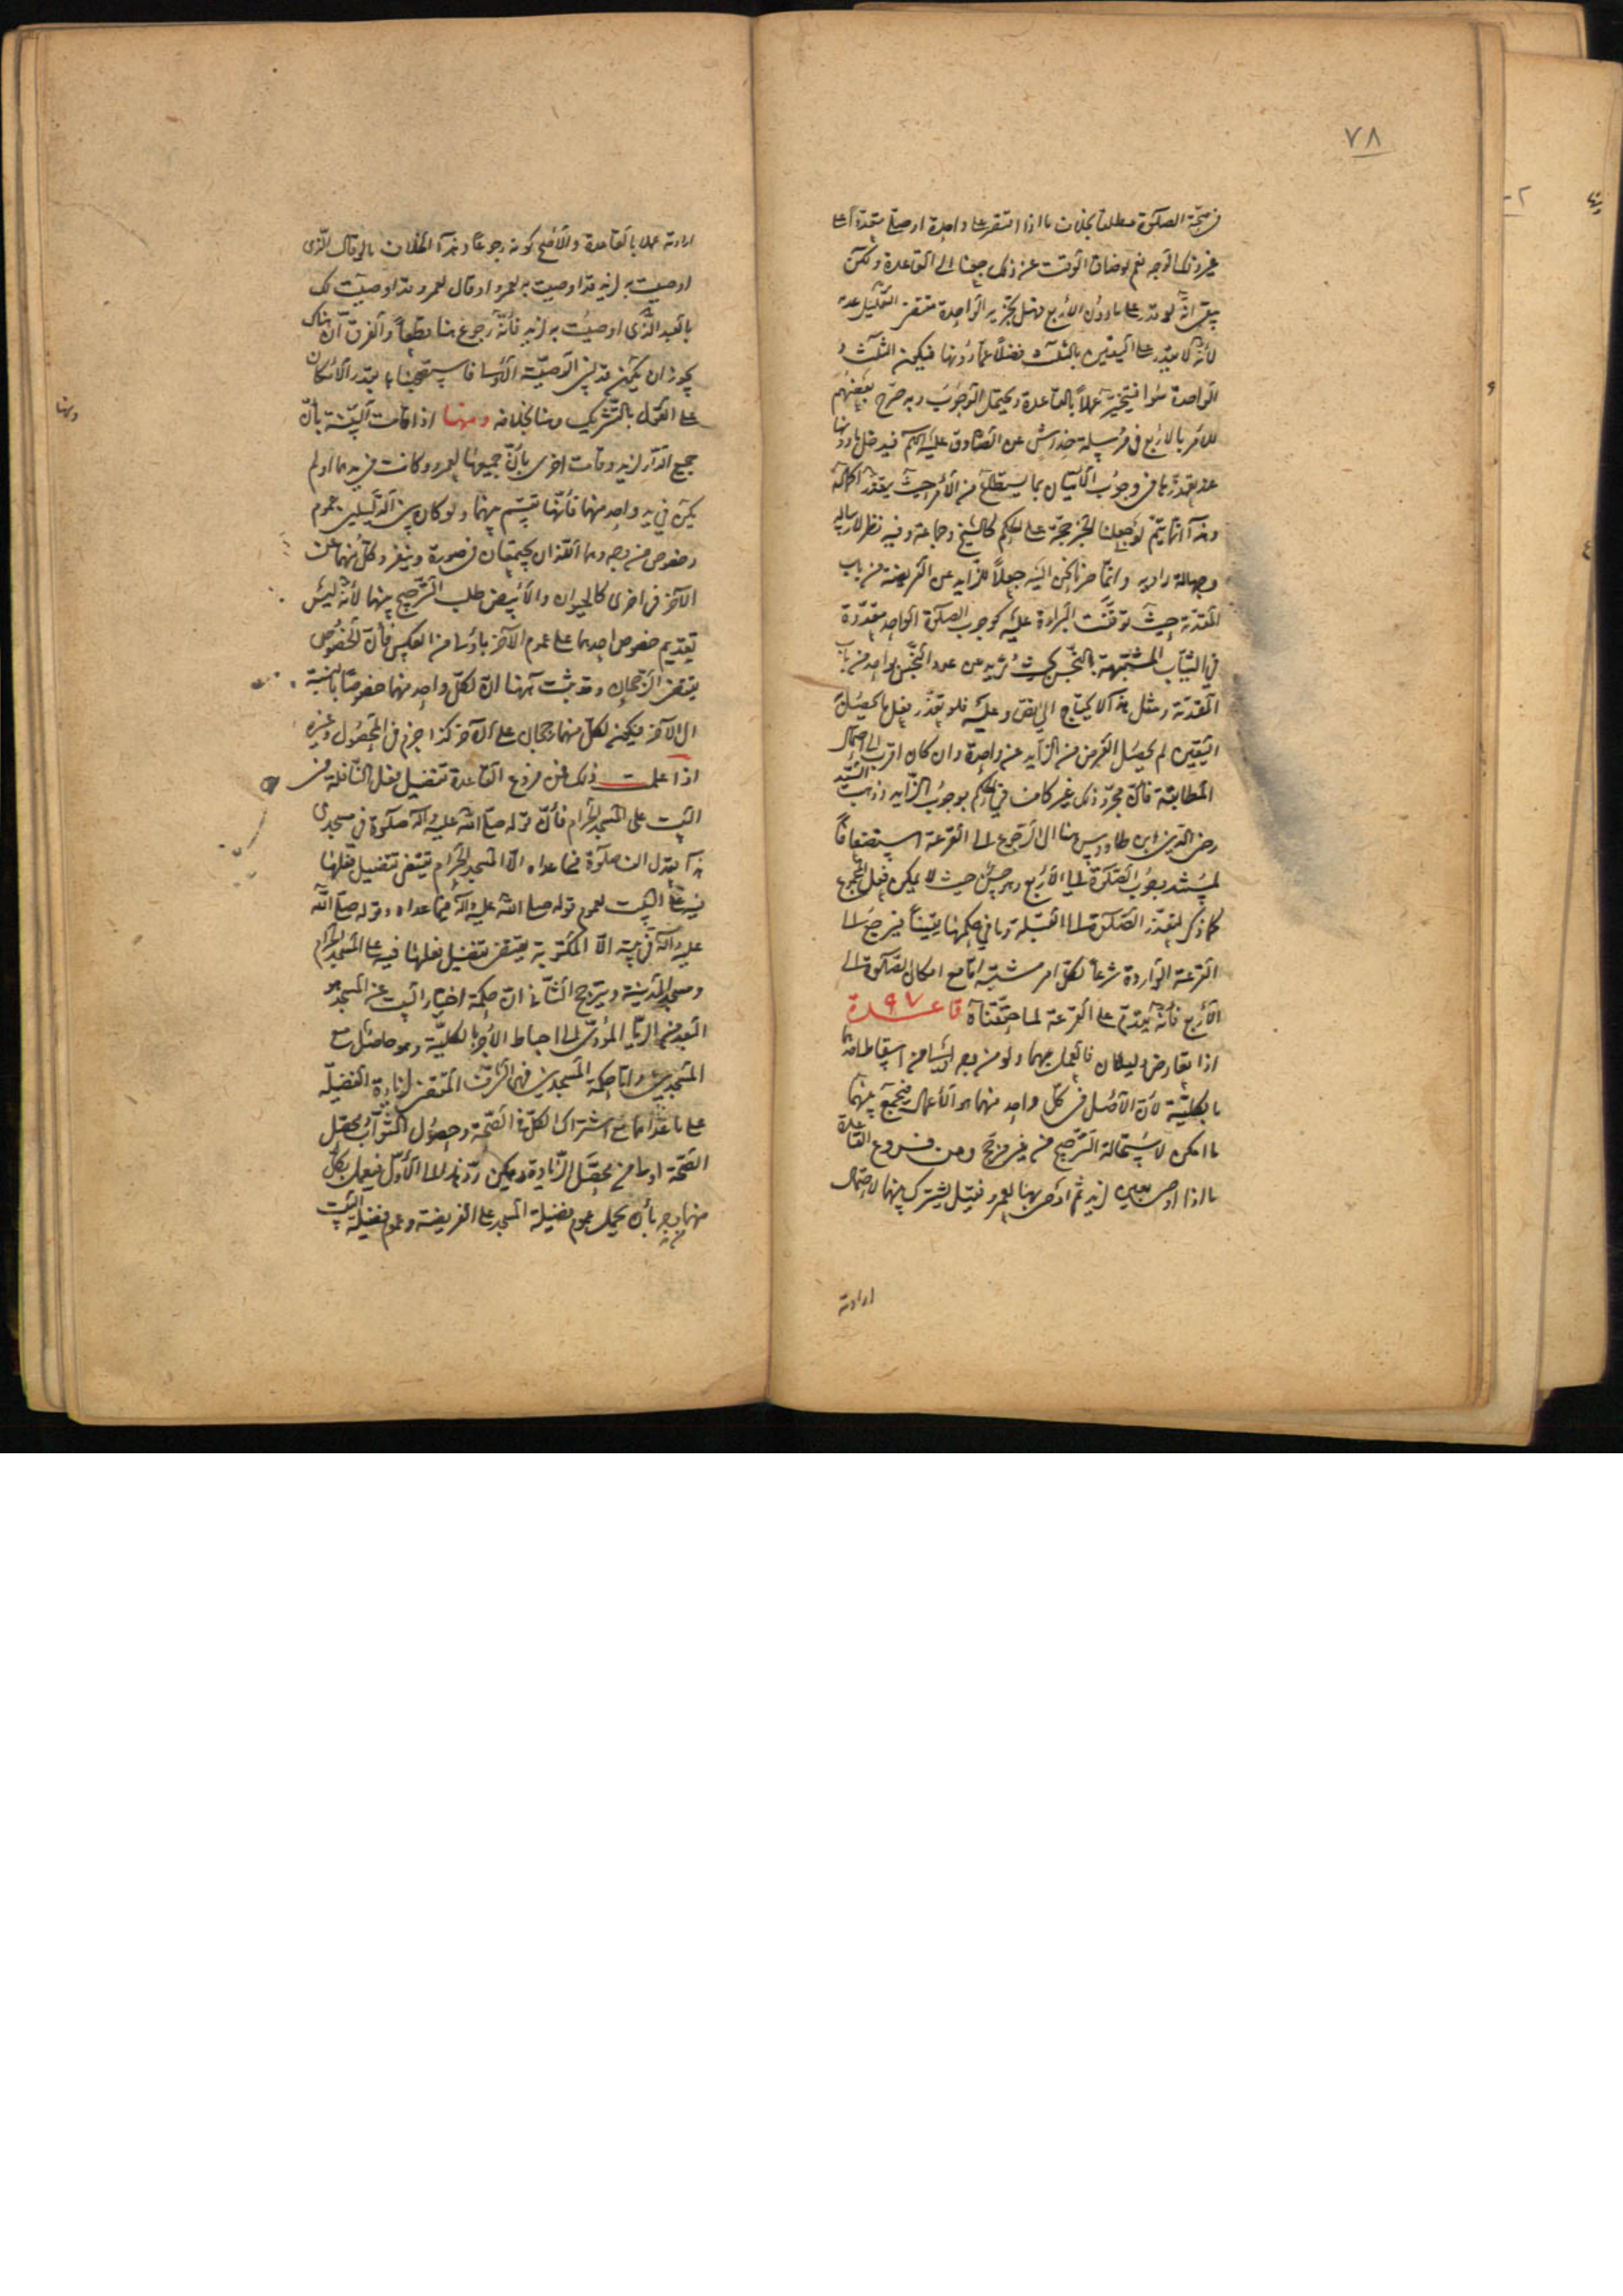 ٧٨
في صحّة الصلوة مطلقا بخلاف ما اذا اقتصر على واحدة او صلّى متعدّدا على
غير ذلك الوجه نعم لو ضاق الوقت عن ذلك رجعنا الى القاعدة ولكن
يبقى انّه لو قدر على ما دون الأربع فهل تجزيه الواحدة مقتضى التعليل عدمه
لأنّه لا يقدر على اليقين بالثلاث فضلا عمّا دونها فيكون الثلاث و
الواحدة سواء فيتخيّر عملا بالقاعدة ويحتمل الوجوب وبه صرّح بعضهم
للأمر بالاربع في مرسلة خداش عن الصّادق عليه السلام فيدخل ما دونها
عند تعذّرها في وجوب الاتيان بما يستطاع من الأمر حيث يتعذّر اكماله
وهذا انّما يتمّ لو جعلنا الخبر حجّة على الحكم كالشيخ وجماعة وفيه نظر لارساله
وجهالة راويه وانّما صرنا نحن اليه جعلا للزّايد عن الفريضة من باب
المقدّمة حيث توقّفت البراءة عليه كوجوب الصلوة الواحدة متعدّدة
في الثياب المشتبهة بالنّجس بحيث يزيد عن عدد النّجس بواحد من باب
المقدّمة ومثل هذا لا يحتاج الى نصّ وعليه فلو تعذّر فعل ما يحصل
اليقين لم يحصل الغرض من الزّايد عن واحدة وان كان اقرب الى احتمال
المطابقة فانّ مجرّد ذلك غير كاف في الحكم بوجوب الزّايد وذهب السّيّد
رضي الدين ابن طاووس هنا الى الرّجوع الى القرعة استضعافا
لمستند وجوب الصّلوة الى الأربع وهو حسن حيث لا يمكن فعل المجموع
كما ذكر لتعذّر الصّلوة الى القبلة وما في حكمها يقينا فيرجع الى
القرعة الواردة شرعا لكلّ امر مشتبه امّا مع امكان الصّلوة الى
الأربع فانّه يقدّم على القرعة لما حقّقناه قاعدة ٩٧
اذا تعارض دليلان فالعمل بهما ولو من وجه اولى من اسقاط احدهما
بالكليّة لأنّ الأصل في كلّ واحد منهما هو الأعمال فيجمع بينهما
ما امكن لاستحالة التّرجيح من غير مرجّح ومن فروع القاعدة
ما اذا اوصى بعين لزيد ثم اوصى بها لعمرو فقيل يشترك بينهما لاحتمال
ارادته
ارادته عملا بالقاعدة والأصحّ كونه رجوعا وهذا الخلاف ما لو قال الّذي
اوصيت به لزيد قد اوصيت به لعمرو او قال لعمرو قد اوصيت لك
بالعبد الّذي اوصيت به لزيد فانّه رجوع هنا قطعا والفرق انّ هناك
يجوز ان يكون قد نسى الوصيّة الأولى فاستصحبناها بقدر الأمكان
على العمل بالتّشريك وهنا بخلافه ومنها اذا قامت البيّنة بأنّ
جميع الدّار لزيد وقامت اخرى بأنّ جميعها لعمرو وكانت في يدهما او لم
يكن في يد واحد منهما فانّها تقسم بينهما ولو كان بين الدّليلين عموم
وخصوص من وجه وهما اللّذان يجتمعان في صورة وينفرد كلّ منهما عن
الآخر في اخرى كالحيوان والأبيض طلب التّرجيح بينهما لأنّه ليس
تقديم خصوص احدهما على عموم الآخر بأولى من العكس فانّ الخصوص
يقتضي الرّجحان وقد ثبت ههنا انّ لكلّ واحد منهما خصوصا بالنسبة
الى الآخر فيكون لكلّ منهما رجحان على الآخر كذا جزم في المحصول وغيره
اذا علمت ذلك فمن فروع القاعدة تفضيل فعل النّافلة في
البيت على المسجد الحرام فأنّ قوله صلّى الله عليه وآله صلوة في مسجدي
هذا تعدل الف صلوة فيما عداه الّا المسجد الحرام يقتضي تفضيل فعلها
فيه على البيت لعموم قوله صلّى الله عليه وآله فيما عداه وقوله صلّى اللّه
عليه وآله في بيته الّا المكتوبة يقتضي تفضيل فعلها فيه على المسجد الحرام
ومسجد المدينة ويترجّح الثّاني انّ حكمة اختيار البيت عن المسجد هو
البعد من الرّيا المؤدّي الى احباط الأجر بالكليّة وهو حاصل مع
المسجدين وامّا حكمة المسجدين فهي الشّرف المقتضي لزيادة الفضيلة
على ما عداهما مع اشتراك الكلّ في الصّحة وحصول الثّواب ومحصّل
الصّحة اولى من محصّل الزّيادة ويمكن ردّ هذا الى الأوّل فيعمل بكلّ
منهما من وجه بأن يحمل عموم فضيلة المسجد على الفريضة وعموم فضيلة البيت
ومنها